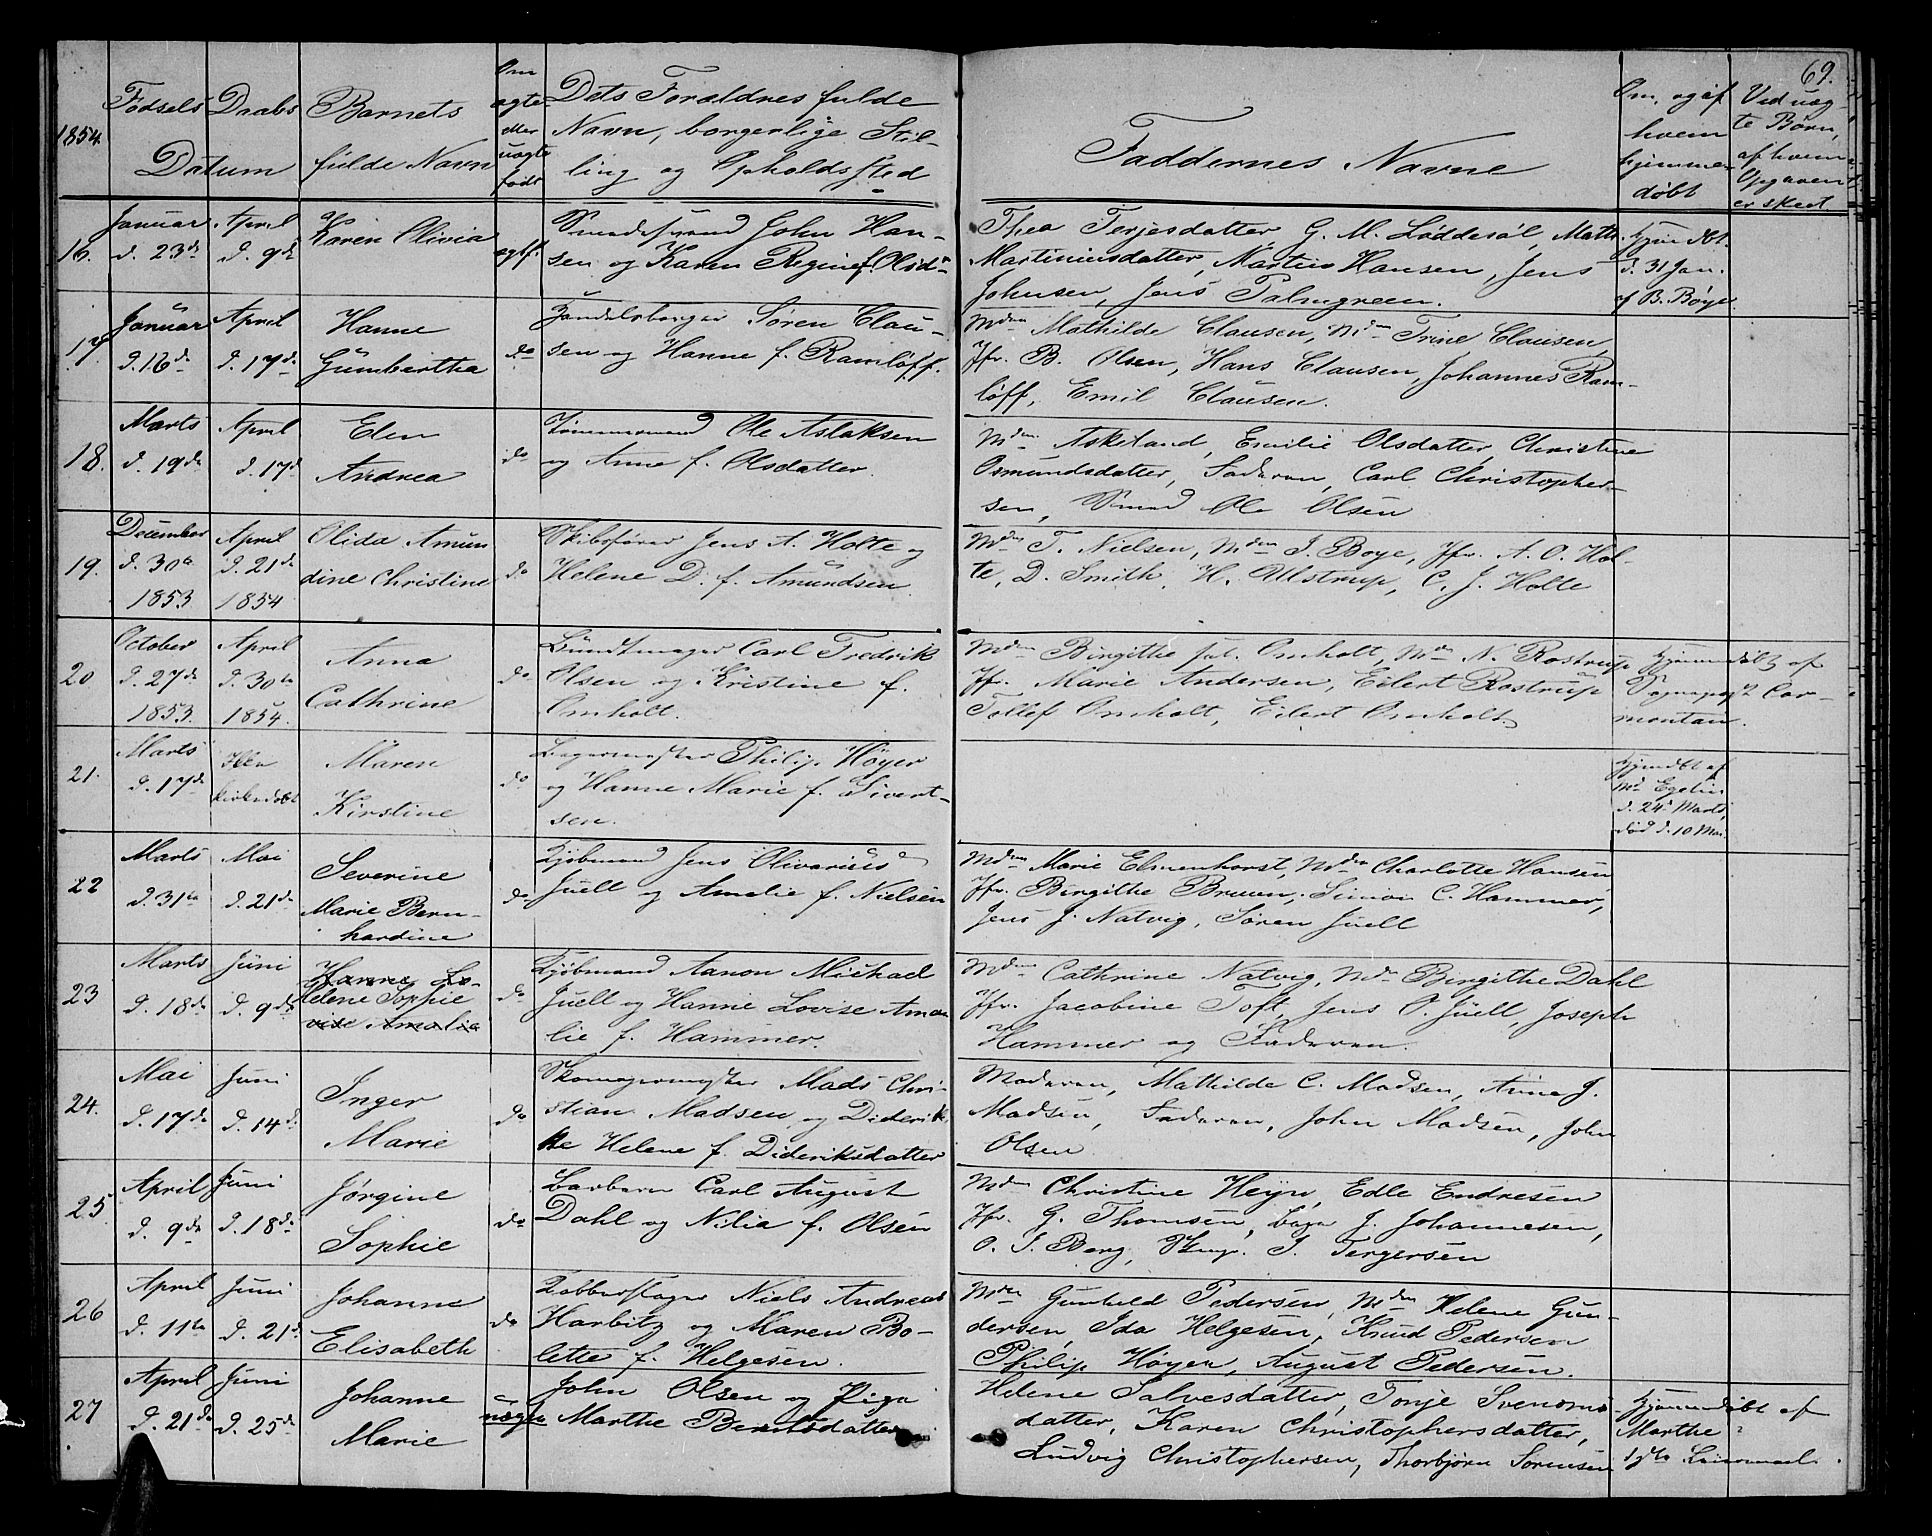 69.
1854.
Fødsels Daabs
Datum
Barnets
fulde Navn
Om
ægte
eller
uægte
født
Dets Forældres fulde
Navn, borgerlige Stil-
ling og Opholdssted
Faddernes Navne
Om, og af
hvem
hjemme-
døbt
Ved uæg-
te Børn,
af hvem
Opgaven
er skeet.
16.
Januar
d. 23de
April
d. 9de
Karen Olivia
ægtf.
John Han-
sen og Karen Regine f. Olsd.
Thea Terjesdatter G. M. Løddesøl, Math.
Martiniusdatter, Martin Hansen, Jens
Johnsen, Jens Palmgreen.
Hjmdbt.
d. 31 Jan.
af B. Bøye.
17.
Januar
d. 16de
April
d. 17de
Hanne
Gumbertha
do
Handelsborger Søren Clau-
sen og Hanne f. Ramløff.
Mdm Mathilde Clausen, Mdm Trine Clausen,
Jfr. B. Olsen, Hans Clausen, Johannes Ram-
løff, Emil Clausen.
18.
Marts
d. 19de
April
d. 17d
Elen
Andrea
do
Tømmermand Ole Aslaksen
og Anne f. Olsdatter.
Mdm Askeland, Emilie Olsdatter, Christine
Osmundsdatter, Faderen, Carl Christopher-
sen, Smed Ole Olsen
19.
December
d. 30te
1853
April
d. 21de
1854
Olida Amun
dine Christine
do
Skibsfører Jens A. Holte og
Helene D. f. Amundsen
Mdm T. Nielsen, Mdm J. Boye, Jfr. A. O. Hol-
te, D. Smith, H. Ullstrup, C. J. Holte
20
October
d. 27de
1853.
April
d. 30te
1854.
Anna
Cathrine
do
Bundtmager Carl Fredrik
Olsen og Kristine f.
Omholt.
Mdm Birgitte sal. Omholt, Mdm N. Rostrup
Jfr. Marie Andersen, Eilert Rostrup
Tollef Omholt, Eilert Omholt
Hjemmedøbt af
Sogneprest Car-
montan.
21.
Marts
d. 17de
Ikke
kirkedøbt
Maren
Kirstine
do
Bagermester Philip Høyer
og Hanne Marie f. Sivert-
sen.
Hjemdbt af
Md Egelin
d. 24d Marts,
død d. 10 Mai.
22
Marts
d. 31te
Mai
d. 21de
Severine
Marie Bern-
hardine
do
Kjøbmand Jens Olivarius
Juell og Amalie f. Nielsen
Mdm Marie Elmenhorst, Mdm Charlotte Hansen
Jfr. Birgithe Bruun, Simon C. Hammer,
Jens J. Natvig, Søren Juell
23
Marts
d. 18de
Juni
d. 9de
Hanne Lo-
Helene Sophie
vise Amalia
do
Kjøbmand Aanon Michael
Juell og Hanne Lovise Ama
lie f. Hammer.
Mdm Cathrine Natvig, Mdm Birgithe Dahl
Jfr. Jacobine Toft, Jens O. Juell, Joseph
Hammer og Faderen.
24.
Mai
d. 17de
Juni
d. 14de
Inger
Marie
do
Skomagermester Mads Chri-
stian Madsen og Diderik-
ke Helene f. Dideriksdatter
Moderen, Mathilde C. Madsen, Anna J.
Madsen, Faderen, John Madsen, John
Olsen
25.
April
d. 9de
Juni
d. 18de
Jørgine
Sophie
do
Barberer Carl August
Dahl og Nilia f. Olsen
Mdm Christine Heyn, Edle Endresen
Jfr. G. Thomsen, J. Johannesen,
O. S. Berg, Tergersen
26
April
d. 11te
Juni
d. 21de
Johanne
Elisabeth
do
Kobberslager Niels Andreas
Harbitz og Maren Bo-
lette f. Helgesen.
Mdm Gunhild Pedersen, Mdm Helene Gun-
dersen, Ida Helgesen, Knud Pedersen
Philip Høyer, August Pedersen.
27
April
d. 21de
Juni
d. 25de
Johanne
Marie
uægte
John Olsen og Pige
Marthe Berntsdatter
Helene Salvesdatter, Tonje Svenoms-
datter, Karen Christophersdatter,
Ludvig Christophersen, Thorbjørn Sørensen
Hjemmedøbt af
Marthe